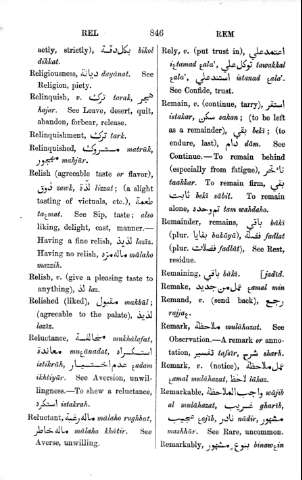 REL 846 REM
actly, strictly), بكل دقة bikol
dikkat.
Religiousness, ديانة dayânat. See
Religion, piety.
Relinquish, v. ترك tarak, هجر
hajar. See Leave, desert, quit,
abandon, forbear, release.
Relinquishment, ترك tark.
Relinquished, متروك matrûk,
مهجور mahjûr.
Relish (agreeable taste or flavor),
ذوق zawk, لذة lizzat; (a slight
tasting of victuals, etc.), طعمة
See Sip, taste; also
liking, delight, cast, manner.—
Having a fine relish, لذيذ lazîz.
Having no relish, ماله مزه mâlaho
mazzih.
Relish, v. (give a pleasing taste to
anything), لذ laz.
Relished (liked), مقبول makbûl;
(agreeable to the palate), لذيذ
lazîz.
Reluctance, مخالفة mukhâlafat,
معاندة muʿânadat, استكراه
istikrâh, عدم اختيار ʿadam
ikhtiyâr. See Aversion, unwil-
lingness.—To shew a reluctance,
استكره istakrah.
Reluctant, ماله رغبة mâlaho rughbat,
ماله خاطر mâlaho khâtir. See
Averse, unwilling.
Rely, v. (put trust in), اعتمد على
iʿtamad ʿala', توكل على tawakkal
ʿala', استند على istanad ʿala'.
See Confide, trust.
Remain, v. (continue, tarry), استقر
istakar, سكن sakan; (to be left
as a remainder), بقي baki; (to
endure, last), دام dâm. See
Continue.—To remain behind
(especially from fatigue), تأخر
taakhkhar. To remain firm, بقي
ثابت baki sâbit. To remain
alone, تم وحده tam wahdaho.
Remainder, remains, باقي bâkî
(plur. بقايا bakâyâ), فضلة fadlat
(plur. فضلات fadlât). See Rest,
residue.
Remaining, باقي bâkî. [jadîd.
Remake, عمل من جديد ʿamal min
Remand, v. (send back), رجع
rajjaʿ.
Remark, ملاحظة mulâhazat. See
Observation.—A remark or anno-
tation, تفسير tafsîr, شرح sharh.
Remark, v. (notice), عمل ملاحظة
ʿamal mulâhazat, لاحظ lâhaz.
Remarkable, واجب الملاحظة wâjib
al mulâhazat, غريب gharîb,
عجيب ʿajîb, نادر nâdir, مشهور
mashhûr. See Rare, uncommon.
Remarkably, بنوع مشهور binawʿin